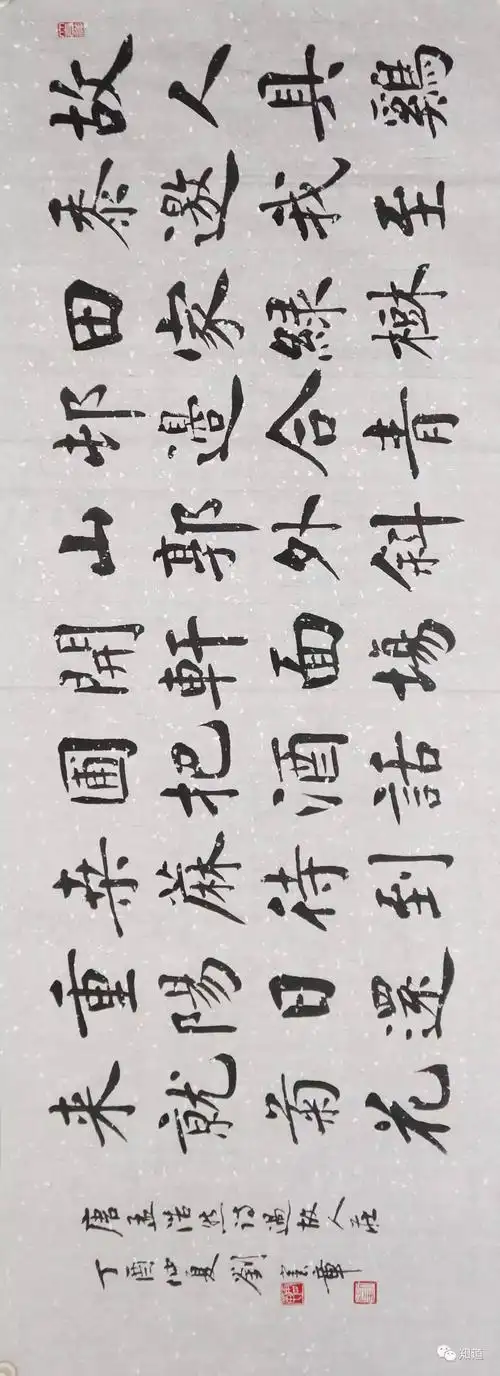 故人具鷄
黍邀我至
田家綠樹
邨邊合青
山郭外斜
開軒面場
圃把酒話
桒麻待到
重陽日還
来就菊花
唐孟浩然詩過故人莊
丁酉仲夏劉章
知道